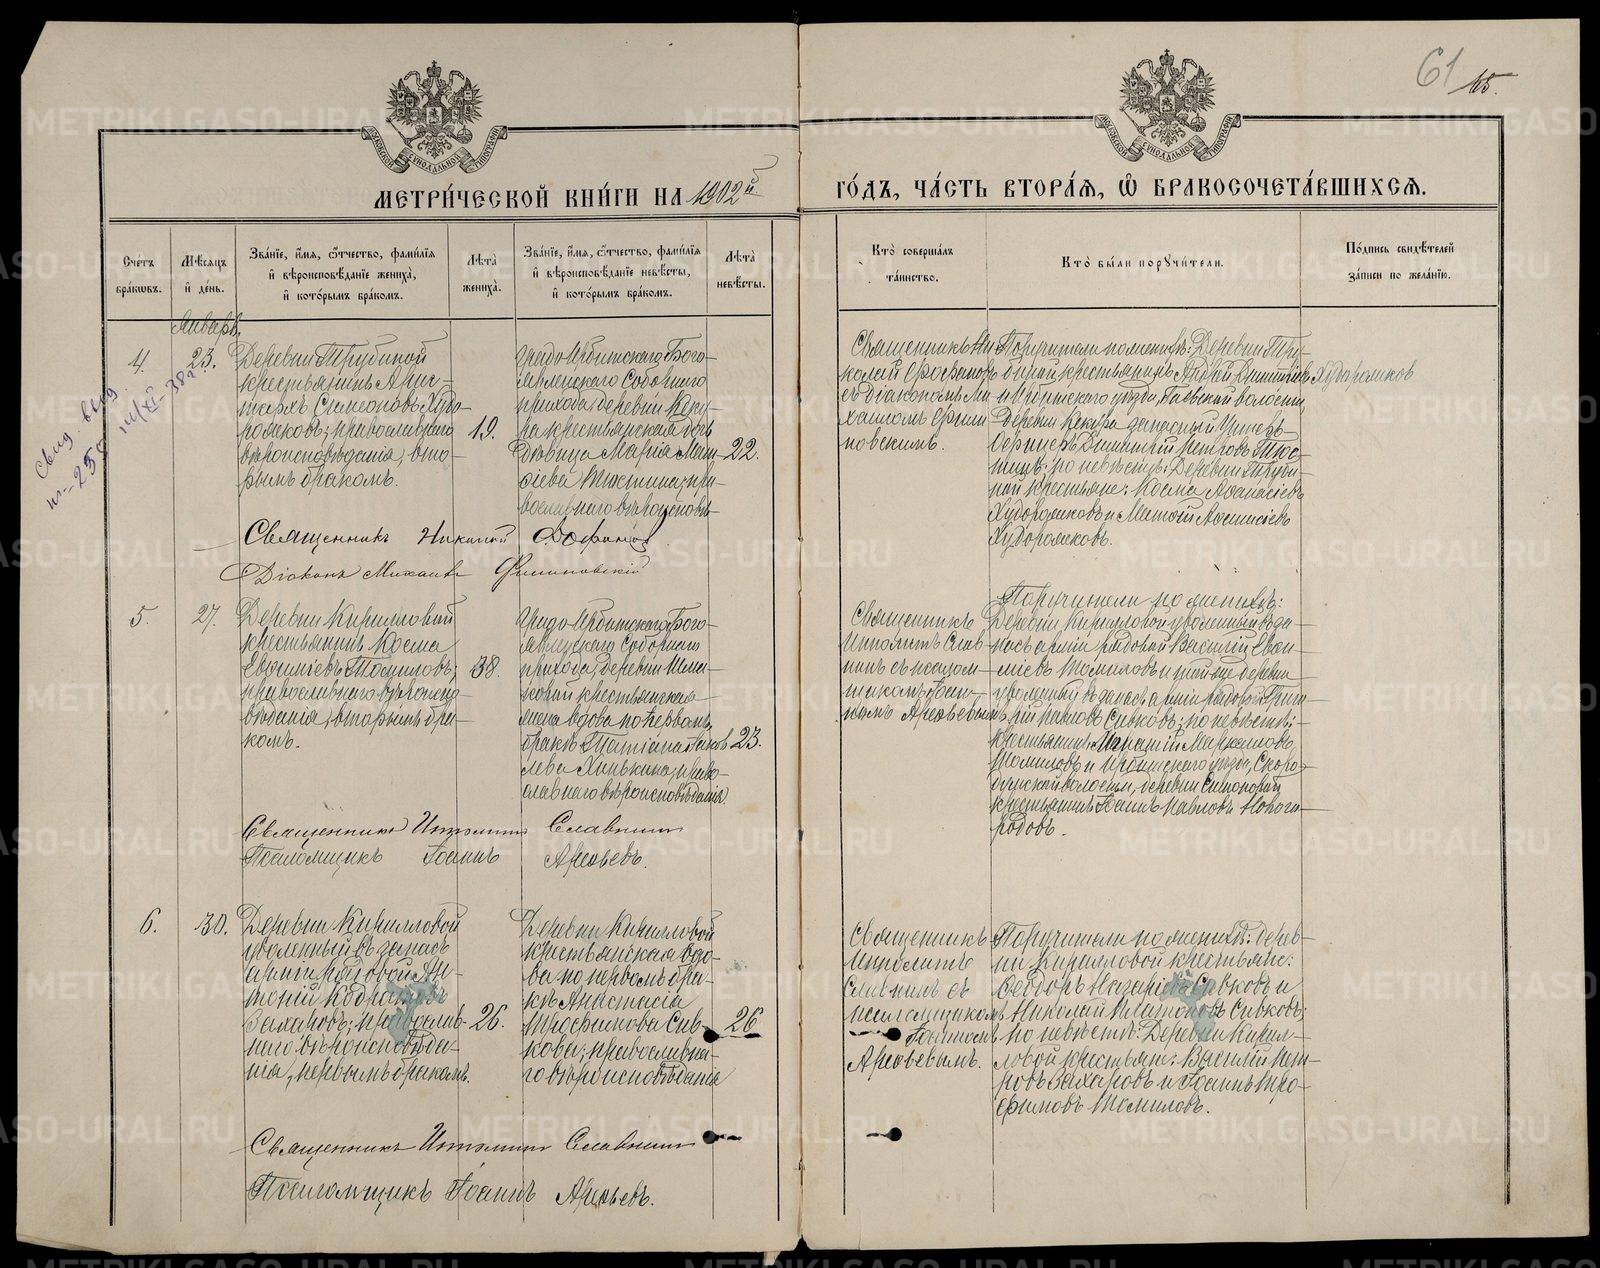 61 115.
МЕТРИ́ЧЕСКОЙ КНИ́ГИ НА 1902й.
ГО́ДЪ, ЧА́СТЬ ВТОРА́Я, Ѿ БРАКОСОЧЕТА́ВШИХСЯ.
Счетъ бра́ковъ.
Мѣ́сяцъ и҆ де́нь.
Зва́нїе, и҆́мя, ѻ҆́тчество, фами́лїя
и҆ вѣроисповѣ́данїе жениха̀,
и҆ кото́рымъ бра́комъ.
Лѣ́та жениха̀.
Зва́нїе, и҆́мя, ѻ҆́тчество, фами́лїя
и҆ вѣроисповѣ́данїе невѣ́сты,
и҆ кото́рымъ бра́комъ.
Лѣ́та невѣ́сты.
Кто̀ соверша́лъ
та́инство.
Кто̀ бы́ли порꙋчи́тели.
По́дпись свидѣ́телей
за́писи по жела́нїю.
Январь.
4.
23.
Деревни Трубиной
крестьянинъ Арис-
тархъ Симеоновъ Худо-
рожковъ; православнаго
вѣроисповѣданія, вто-
рымъ бракомъ.
19.
Градо-Ирбитскаго Бого-
явленскаго Соборнаго
прихода, деревни Кеку-
ра крестьянская дочь
дѣвица Марія Мат-
ѳіева
православнаго вѣроисповѣд-
22.
Священникъ Ни-
колай
съ діакономъ Ми-
хаиломъ Филип-
повскимъ.
Поручители по женихѣ: Деревни Тру-
биной крестьянинъ Андрей Димитріевъ Худорожков
и Ирбитскаго уѣзда, Гаевской волости,
Деревни Кекура запасный унтеръ-
офицеръ Димитрій Петровъ
по невѣстѣ: Деревни Труби-
ной крестьяне: Косма Аѳанасіевъ
Худорожковъ и Матѳій Аѳанасіевъ
Худорожковъ.
Священникъ Николай
Діаконъ Михаилъ Филипповскій
5.
27.
Деревни Кирилловой
крестьянинъ Косма
Евѳиміевъ Томиловъ;
православнаго вѣроиспо-
вѣданія, вторымъ бра-
комъ.
38.
Градо-Ирбитскаго Бого-
явленскаго Соборнаго
прихода, деревни
крестьянская
жена вдова по первомъ
бракѣ Татіана Іаков-
лева Ханькина, право-
славнаго вѣроисповѣданія
23.
Священникъ
Ипполитъ Слав-
нинъ съ псалом-
щикомъ Іоан-
номъ Арефьевымъ
Поручители по женихѣ:
Деревни Кирилловой уволенный въ за-
пасъ арміи рядовой Василій Евѳи-
міевъ Томиловъ и той же деревни
уволенный въ запасъ арміи рядовой Григо-
рій Павловъ Сивковъ; по невѣстѣ:
крестьянинъ Игнатій Маркеловъ
Томиловъ и Ирбитскаго уѣзда, Скоро-
думской волости, деревни
крестьянинъ Іоаннъ Павловъ Нового-
родовъ.
Священникъ Ипполитъ Славнинъ
Псаломщикъ Іоаннъ Арефьевъ.
6.
30.
Деревни Кирилловой
уволенный въ запасъ
арміи рядовой Ан-
тоній Кодратовъ
Захаровъ; православ-
наго вѣроисповѣда-
нія, первымъ бракомъ.
26.
Деревни Кирилловой
крестьянская вдо-
ва по первомъ бра-
кѣ Анастасія
Трофимова Сив-
кова; православна-
го вѣроисповѣданія
26
Священникъ
Ипполитъ
Славнинъ съ
псаломщикомъ
Іоанномъ
Арефьевымъ.
Поручители по женихѣ: дерев-
ни Кирилловой крестьяне:
Ѳеодоръ Назаріевъ Сивковъ и
Николай Платоновъ Сивковъ;
по невѣстѣ: Деревни Кирил-
ловой крестьяне: Василій Пет-
ровъ Захаровъ и Іоаннъ Тро-
фимовъ Томиловъ.
Священникъ Ипполитъ Славнинъ
Псаломщикъ Іоаннъ Арефьевъ.
METRIKI.GASO-URAL.RU